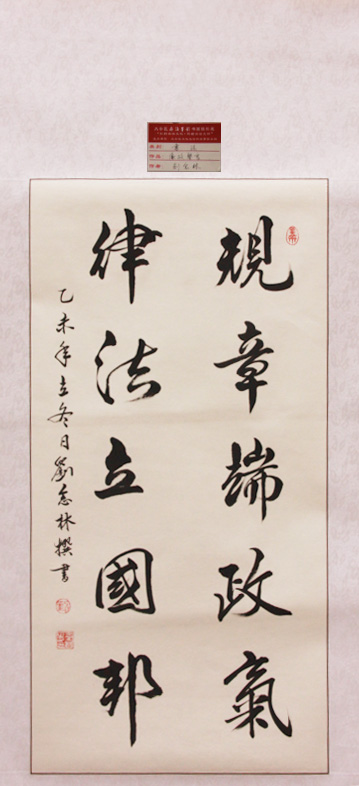 規章端政氣
律法立國邦
乙未年立冬日劉念林撰書